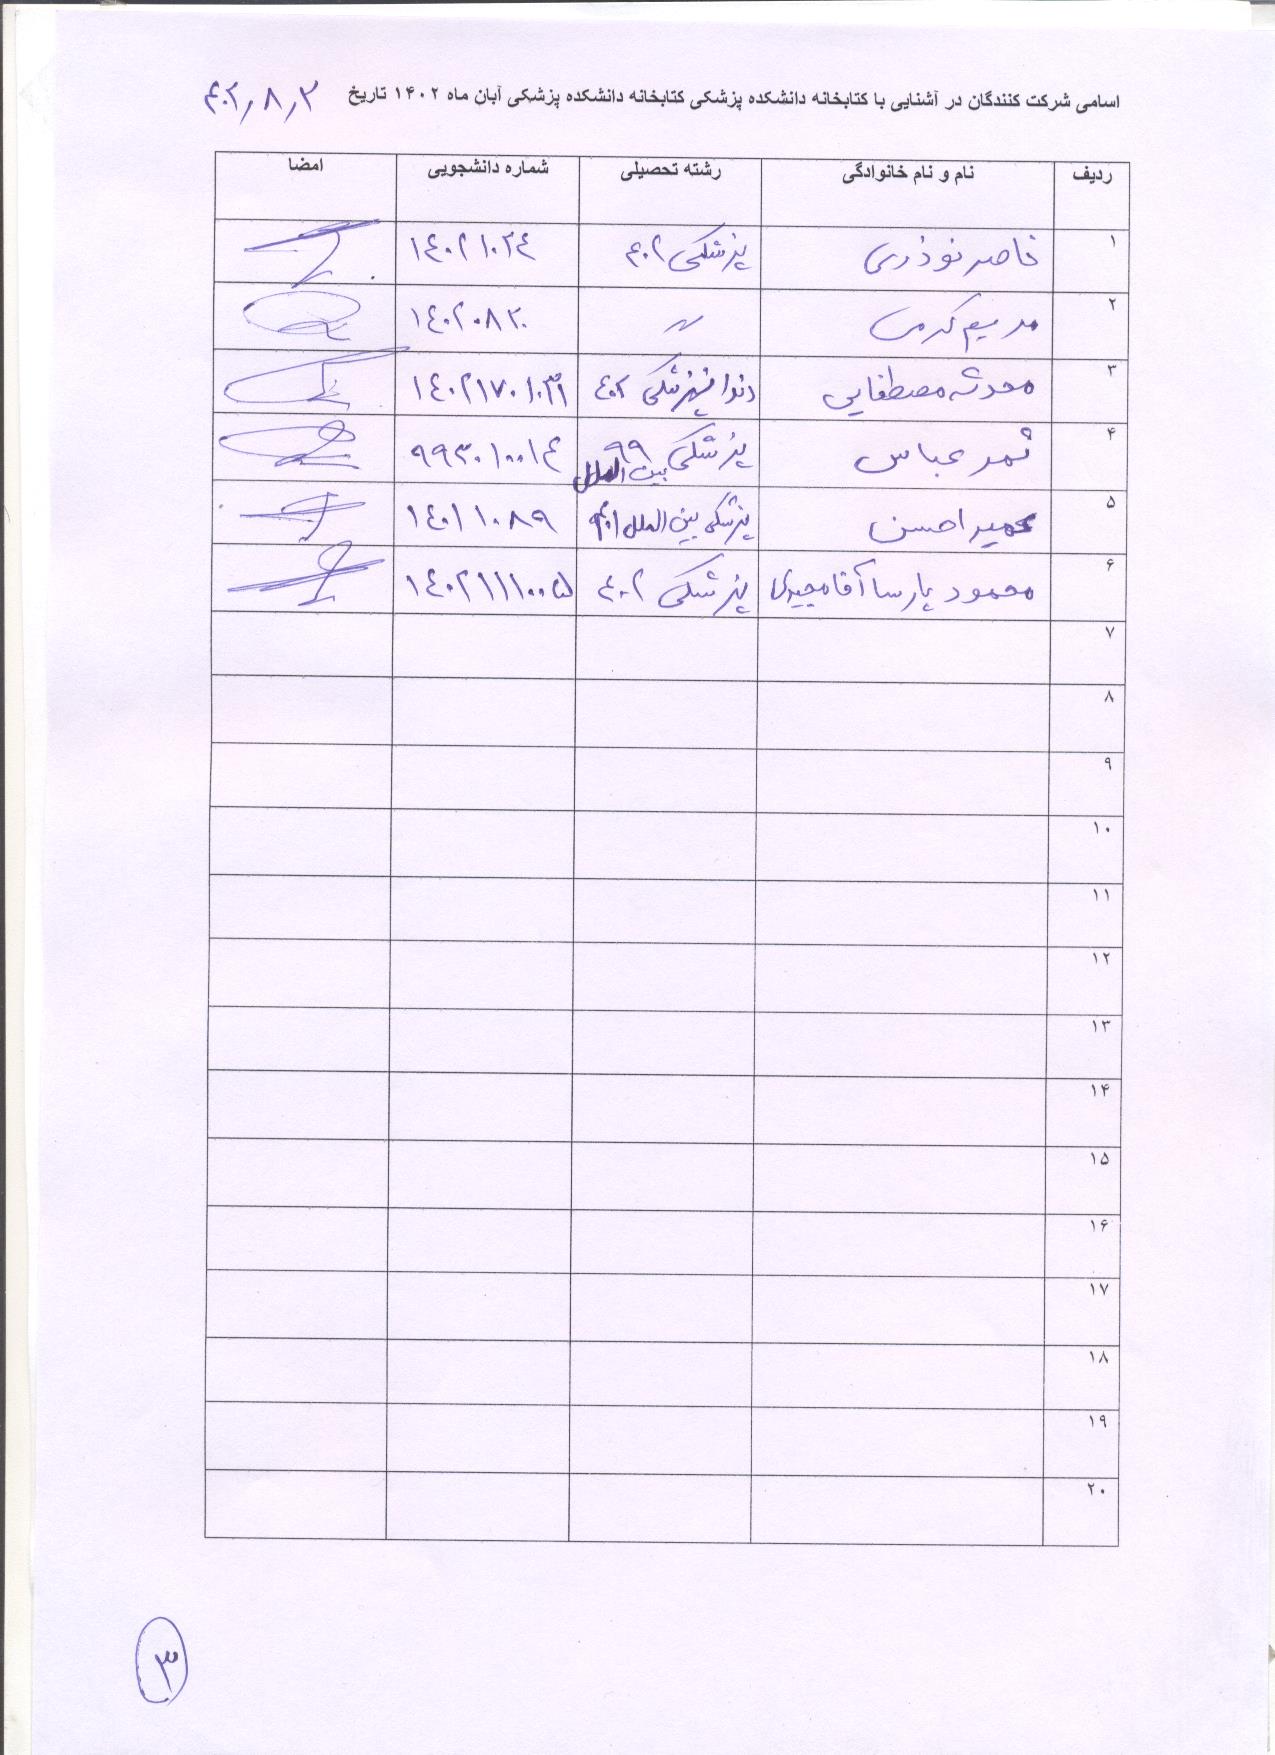 اسامی شرکت کنندگان در آشنایی با کتابخانه دانشکده پزشکی کتابخانه دانشکده پزشکی آبان ماه ۱۴۰۲ تاریخ ۴۰۲٫۸٫۳
ردیف نام و نام خانوادگی رشته تحصیلی شماره دانشجویی امضا
۱ ناصر نوذری پزشکی ۴۰۲ ۱۴۰۲۱۰۲۴
۲ مریم کرمی 〃 ۱۴۰۲۰۸۲۰
۳ محدثه مصطفایی دندانپزشکی ۴۰۲
۴ ثمر عباس پزشکی ۹۹ ۹۹۳۰۱۰۰۱۴
بین الملل
۵ احسن پزشکی بین الملل ۱۴۰۱۱۰۸۹
۶ محمود پارسا آقامجیدی پزشکی ۴۰۲ ۱۴۰۲۱۱۱۰۰۵
۷
۸
۹
۱۰
۱۱
۱۲
۱۳
۱۴
۱۵
۱۶
۱۷
۱۸
۱۹
۲۰
۳